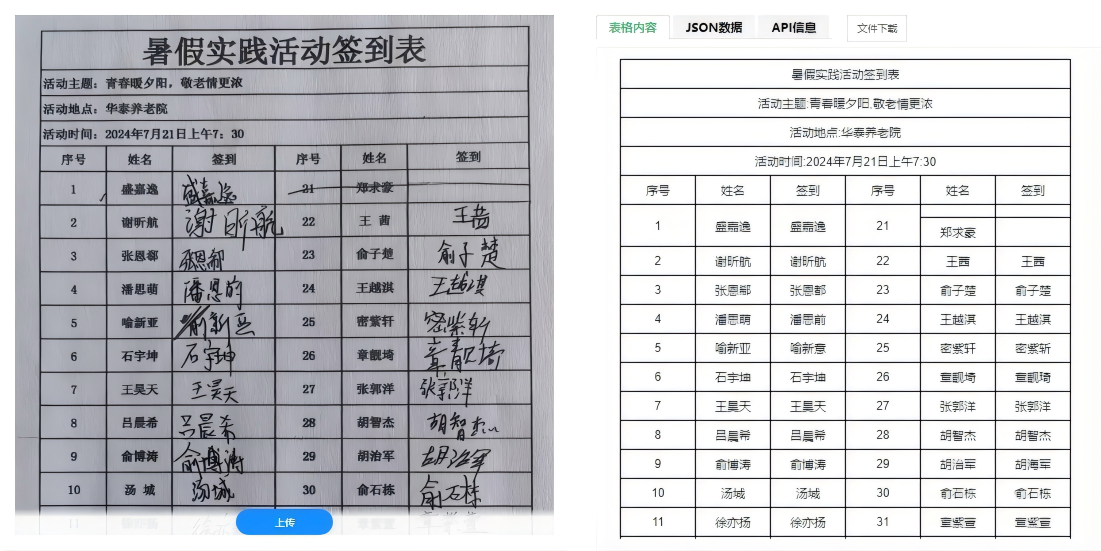 暑假实践活动签到表
活动主题：青春暖夕阳，敬老情更浓
活动地点：华泰养老院
活动时间：2024年7月21日上午7：30
序号 姓名 签到 序号 姓名 签到
1 盛嘉逸 盛嘉逸 21 郑求豪
2 谢昕航 谢昕航 22 王茜 王茜
3 张恩郗 张恩郗 23 俞子楚 俞子楚
4 潘思萌 潘思萌 24 王越淇 王越淇
5 喻新亚 喻新亚 25 密紫轩 密紫轩
6 石宇坤 石宇坤 26 章靓埼 章靓埼
7 王昊天 王昊天 27 张郭洋 张郭洋
8 吕晨希 吕晨希 28 胡智杰 胡智杰
9 俞博涛 俞博涛 29 胡治军 胡治军
10 汤城 汤城 30 俞石栋 俞石栋
11
上传
表格内容 JSON数据 API信息 文件下载
暑假实践活动签到表
活动主题:青春暖夕阳,敬老情更浓
活动地点:华泰养老院
活动时间:2024年7月21日上午7:30
序号 姓名 签到 序号 姓名 签到
1 盛嘉逸 盛嘉逸 21 郑求豪
2 谢昕航 谢昕航 22 王茜 王茜
3 张恩郗 张恩都 23 俞子楚 俞子楚
4 潘思萌 潘思前 24 王越淇 王越淇
5 喻新亚 喻新意 25 密紫轩 密紫斩
6 石宇坤 石宇坤 26 章靓琦 章靓琦
7 王昊天 王昊天 27 张郭洋 张郭洋
8 吕晨希 吕晨希 28 胡智杰 胡智杰
9 俞博涛 俞博涛 29 胡治军 胡海军
10 汤城 汤城 30 俞石栋 俞石栋
11 徐亦扬 徐亦扬 31 章紫萱 章紫萱